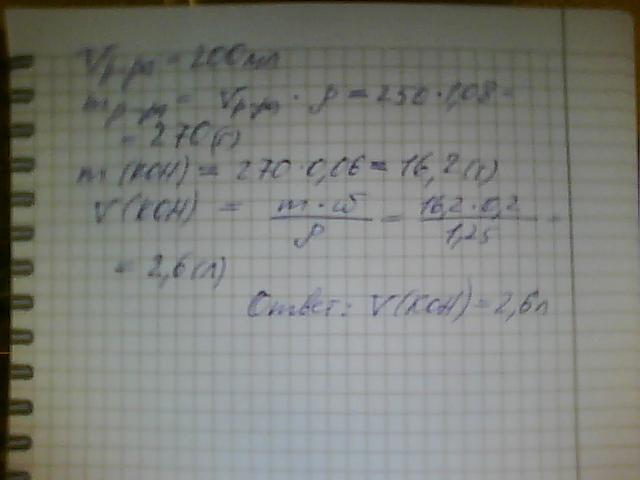 Vр-ра = 200 мл
mр-ра = Vр-ра · ρ = 250 · 1,08 =
= 270 (г)
m (KOH) = 270 · 0,06 = 16,2 (г)
V (KOH) = m · ω / ρ = 16,2 · 0,2 / 1,25 =
= 2,6 (л)
Ответ: V (KOH) = 2,6 л